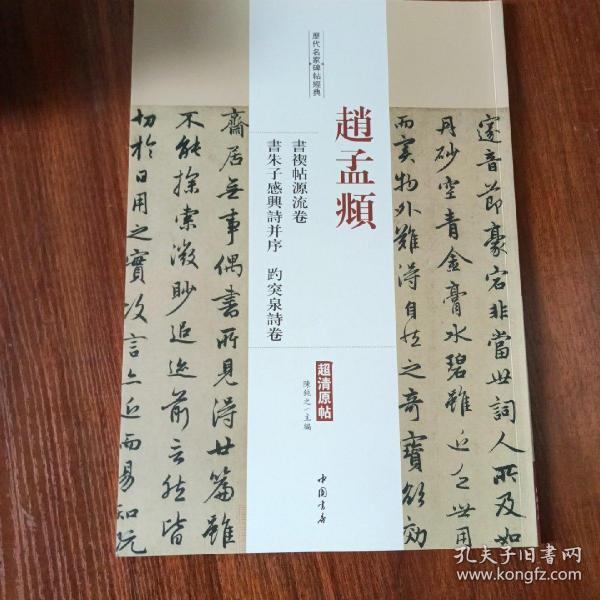 歷代名家碑帖經典
趙孟頫
書禊帖源流卷
書朱子感興詩并序 趵突泉詩卷
超清原帖
陳鈍之／主編
中国書店
邃音節豪宕非當世詞人所及如
丹砂空青金膏水碧雖近乏世用
而實物外難得自然之奇寶欲効
齋居無事偶書所見得廿篇雖
不能探索微眇追迹前言然皆
切於日用之實故言亦近而易知既
孔夫子旧書网
www.kongfz.com